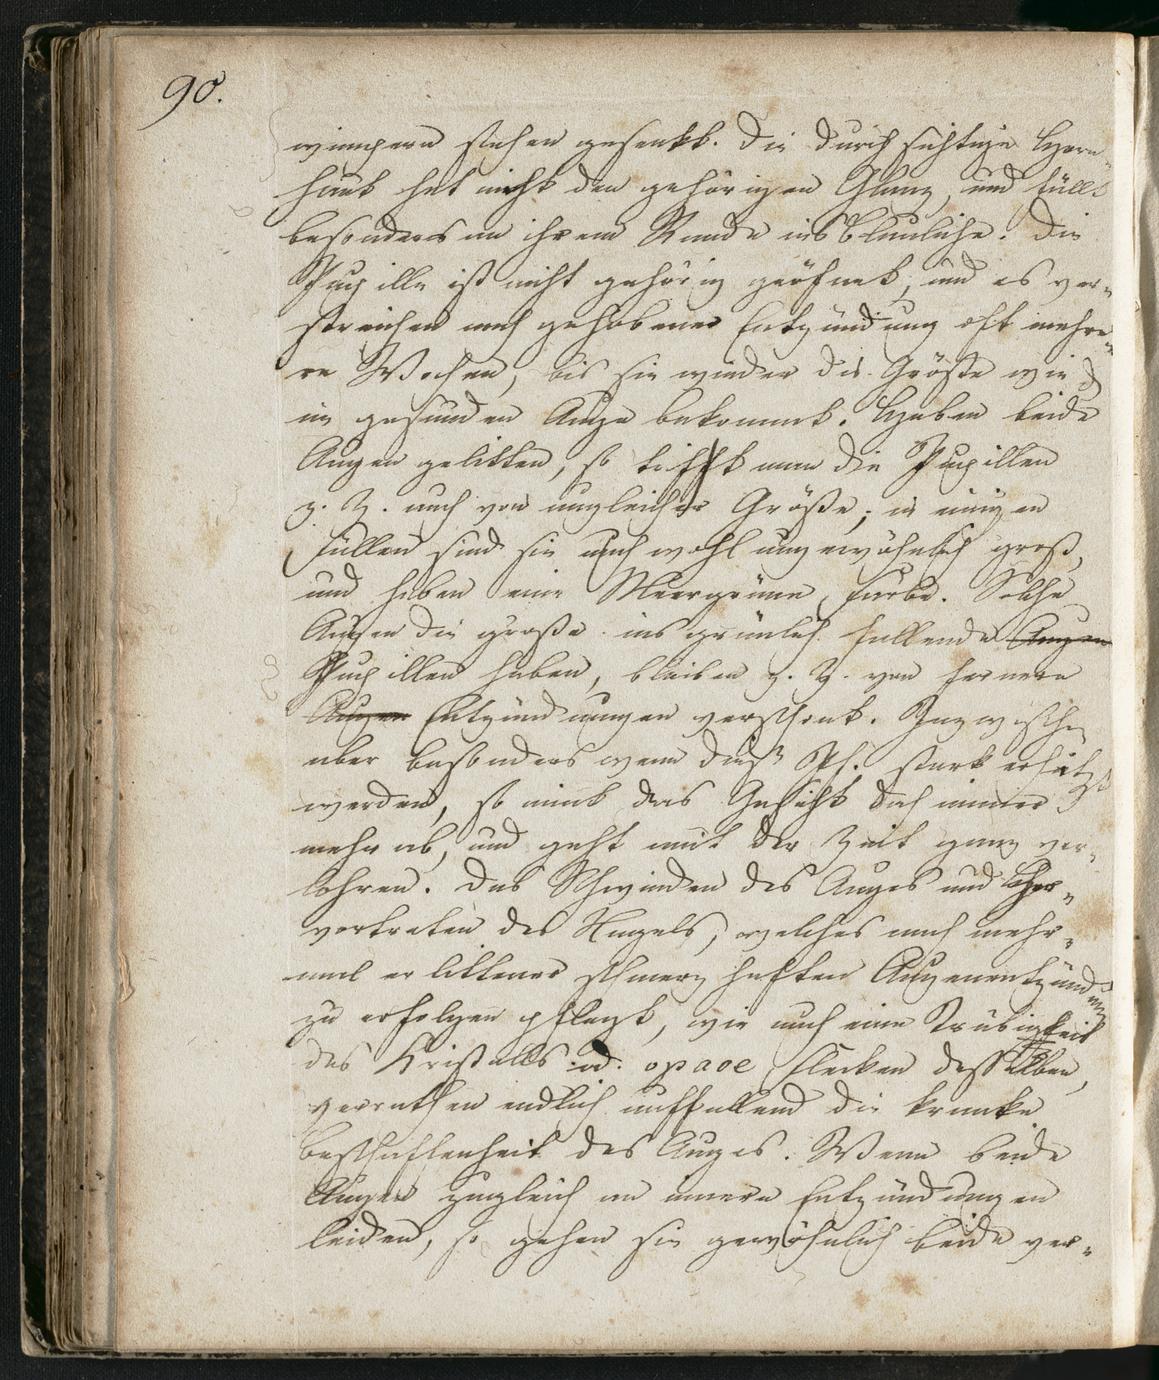 90.
wimpern stehen gesenkt. Die durchsichtige Horn-
haut hat nicht den gehörigen Glanz, und fällt
besonders an ihrem Rande ins Blauliche. Die
Pupille ist nicht gehörig geöfnet, und es ver-
streichen nach gehobener Entzündung oft mehre-
re Wochen, bis sie wieder die Größe wie
im gesunden Auge bekommt. Haben beide
Augen gelitten, so trifft man die Pupillen
z. Z. auch von ungleicher Größe; in einigen
Fällen sind sie auch wohl ungewöhnlich groß,
und haben eine Meergrüne Farbe. Solche
Augen die große ins grünlich fallende Augen
Pupillen haben, bleiben z. Z. von fernern
Augen Entzündungen verschont. Inzwischen
aber besonders wenn dies Pf. stark erhitzt
werden, so nimt das Gesicht doch immer
mehr ab, und geht mit der Zeit ganz ver-
lohren. Das Schwinden des Auges und Her-
vortreten des Nagels, welches nach mehr-
mal erlittener schmerzhaften Augenentzündung
zu erfolgen pflegt, wie auch eine Trübigkeit
des Kristalls od. opace Flecken desselben,
verrathen endlich auffallend die kranke
Beschaffenheit des Auges. Wenn beide
Augen zugleich an innern Entzündungen
leiden, so gehen sie gewöhnlich beide ver-